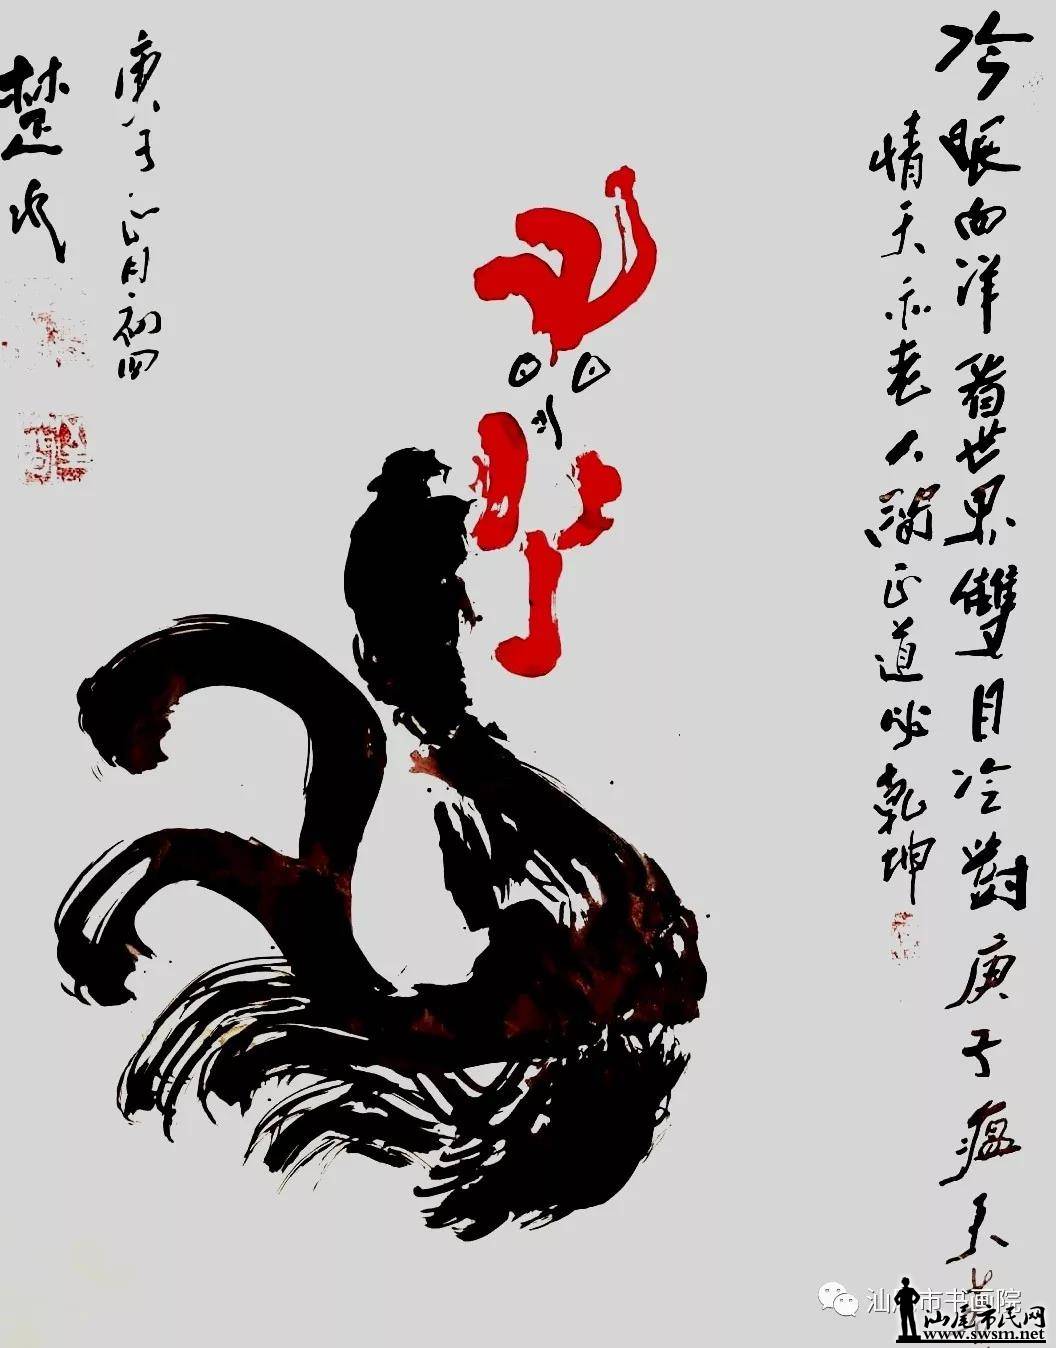 冷眼向洋看世界雙目冷對庚子瘟天
情天亦老人間正道必乾坤
庚子正月初四
楚成
汕尾市书画院
汕尾市民网
www.swsm.net